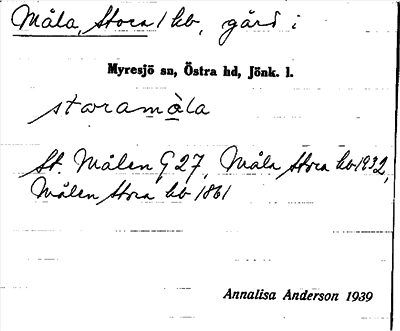 Måla, Stora 1 hb, gård i
Myresjö sn, Östra hd, Jönk. l.
storamàla
St. Målen G 27, Måla Stora hb 1932,
Målen Stora hb 1861
Annalisa Anderson 1939